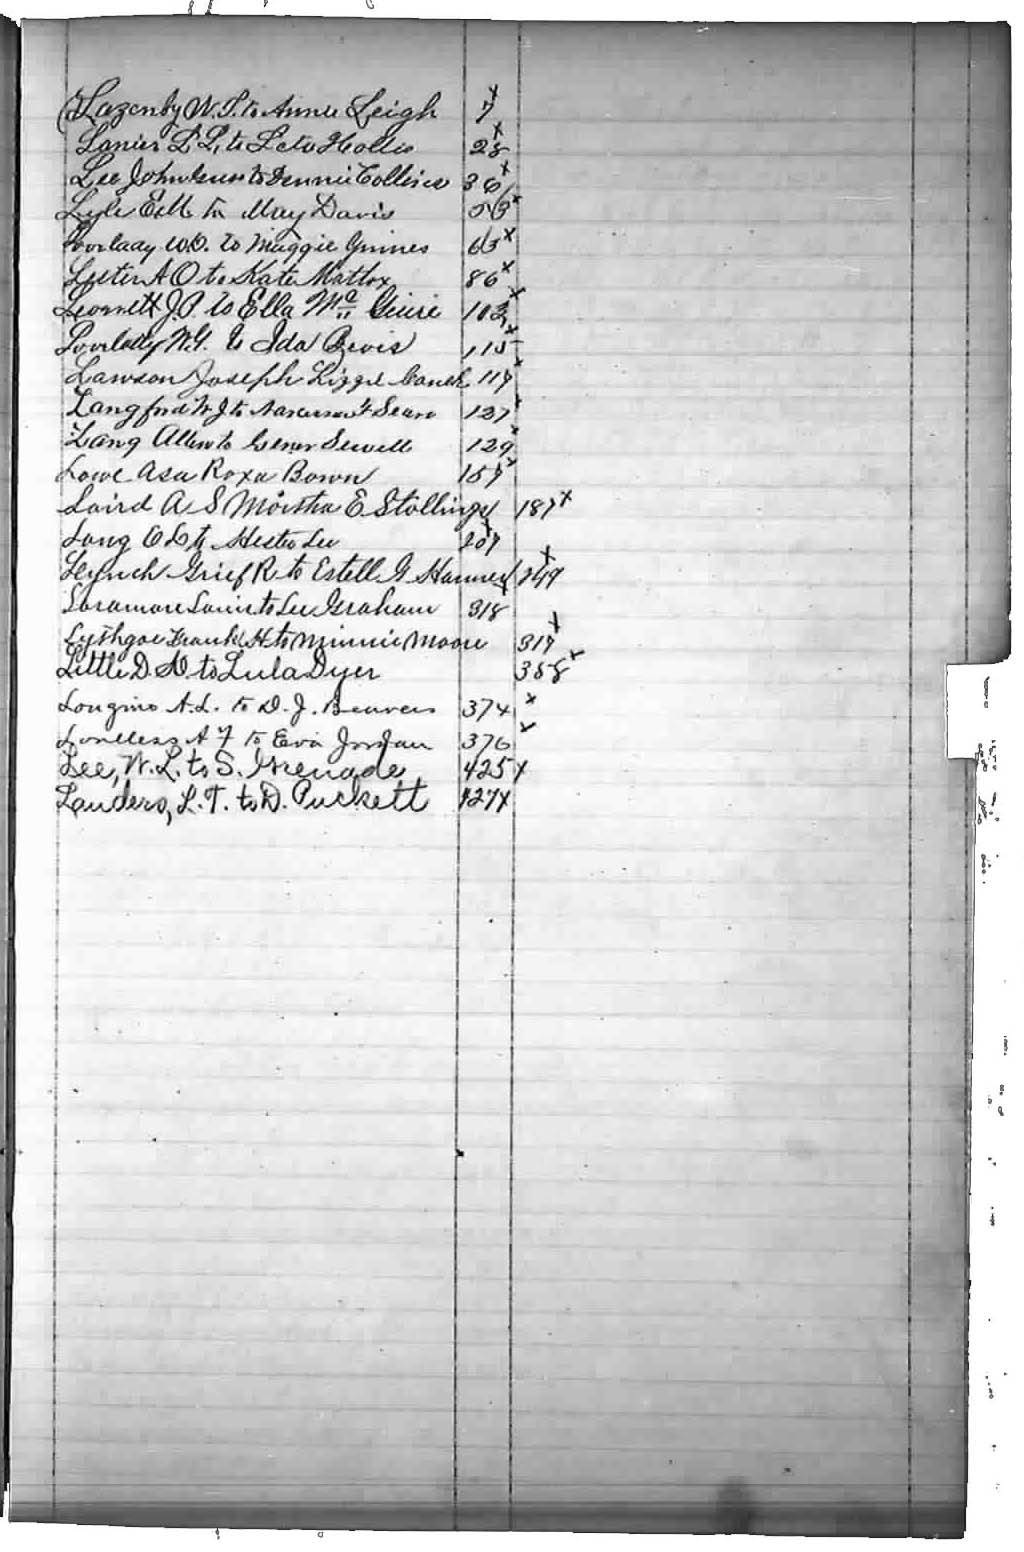 Lazenby W.T. to Annie Leigh 7 x
Lanier L.L. to Leta Hollis 28 x
Lee John to Fannie Collins 36 x
Lyle E.M. to May Davis 53 x
Lovelady W.D. to Maggie Grimes 63 x
Lester A O to Kate Mattox 86 x
J.P. to Ella McGuire 102 x
Lovelady W.G. to Ida Bevis 115 x
Lawson Joseph Lizzie 117 x
Langford W J to Sears 127 x
Lang Allen to Sewell 129 x
Lowe Asa Roxa Bown 157 x
Laird A S Martha E Stallings 187 x
Long to Hester Lee 207 x
Lynch Grief R to Estell G 249 x
Louis to Lee Graham 318 x
Lythgoe Frank H to Minnie Moore 317 x
Little D to Lula Dyer 358 x
Longino A.L. to D.J. Beavers 374 x
A F to Eva Jordan 376 x
Lee, W.L. to S. Grenade 425 x
Landers, L.T. to D. Puckett 427 x